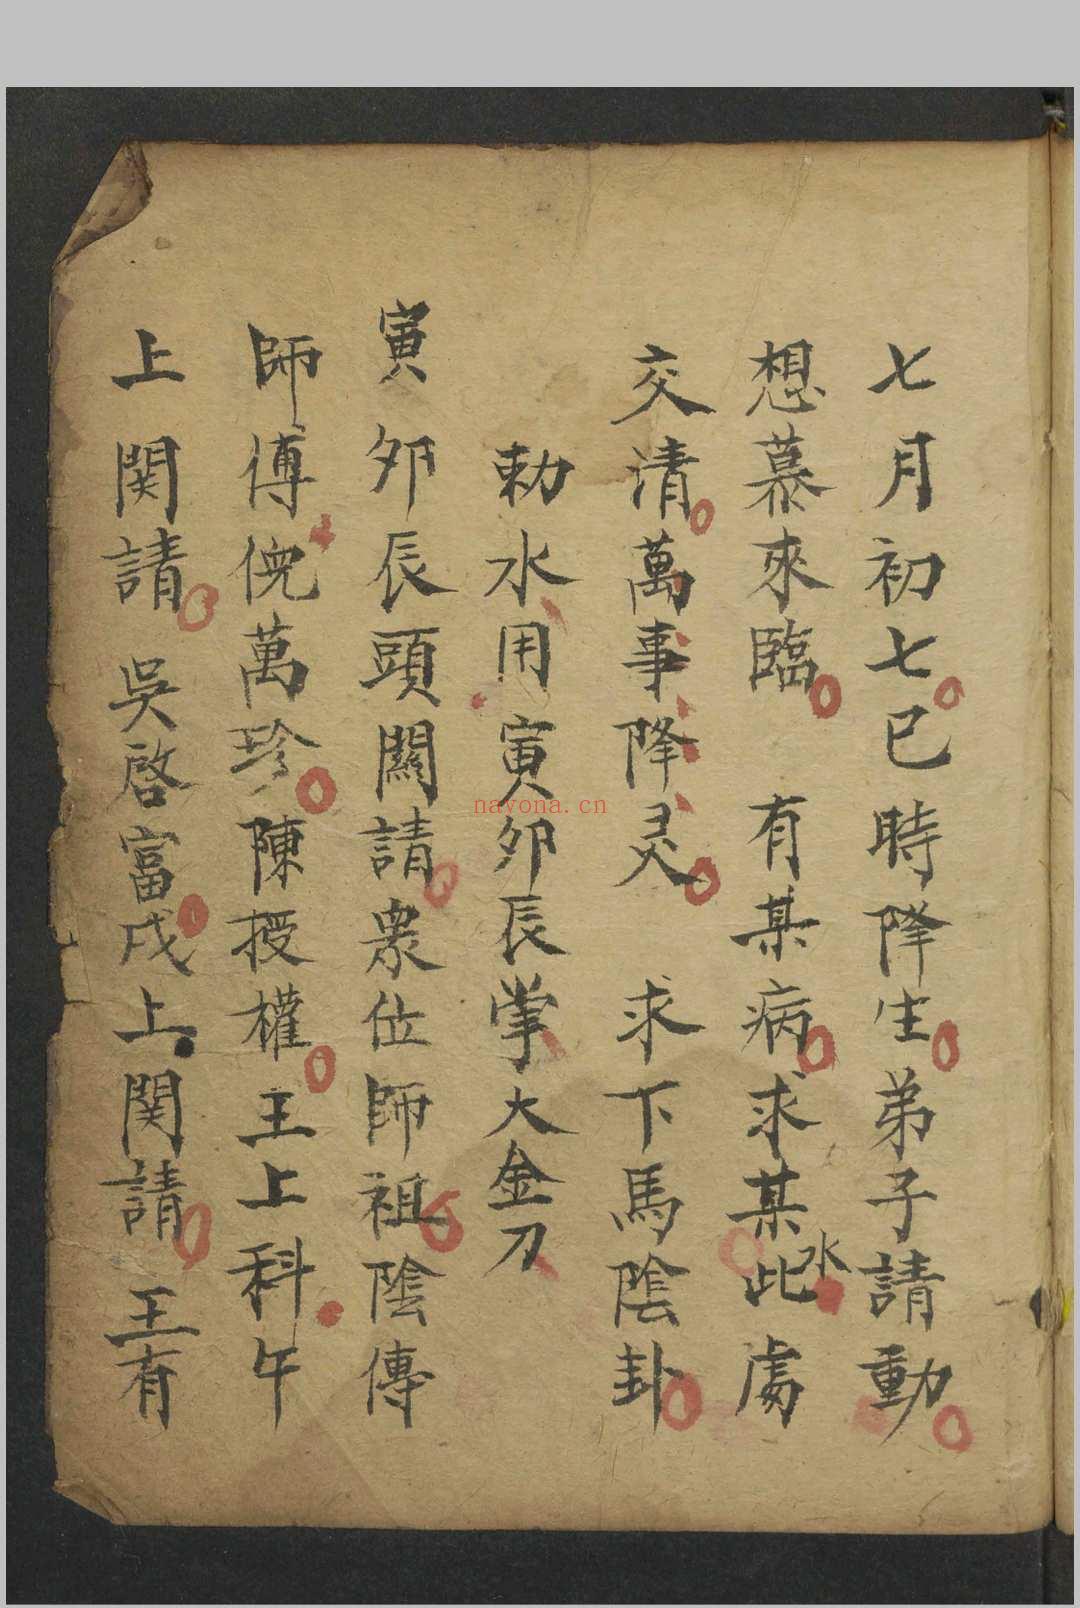 七月初七巳時降生弟子請動
想慕來臨 有某病求某水此處
交清萬事降灵 求下馬陰卦
勅水用寅卯辰掌大金刀
寅卯辰頭關請衆位師祖陰傳
師傅倪萬珍陳授權王上科午
上関請 吳啓富戌上関請 王有
nayona.cn